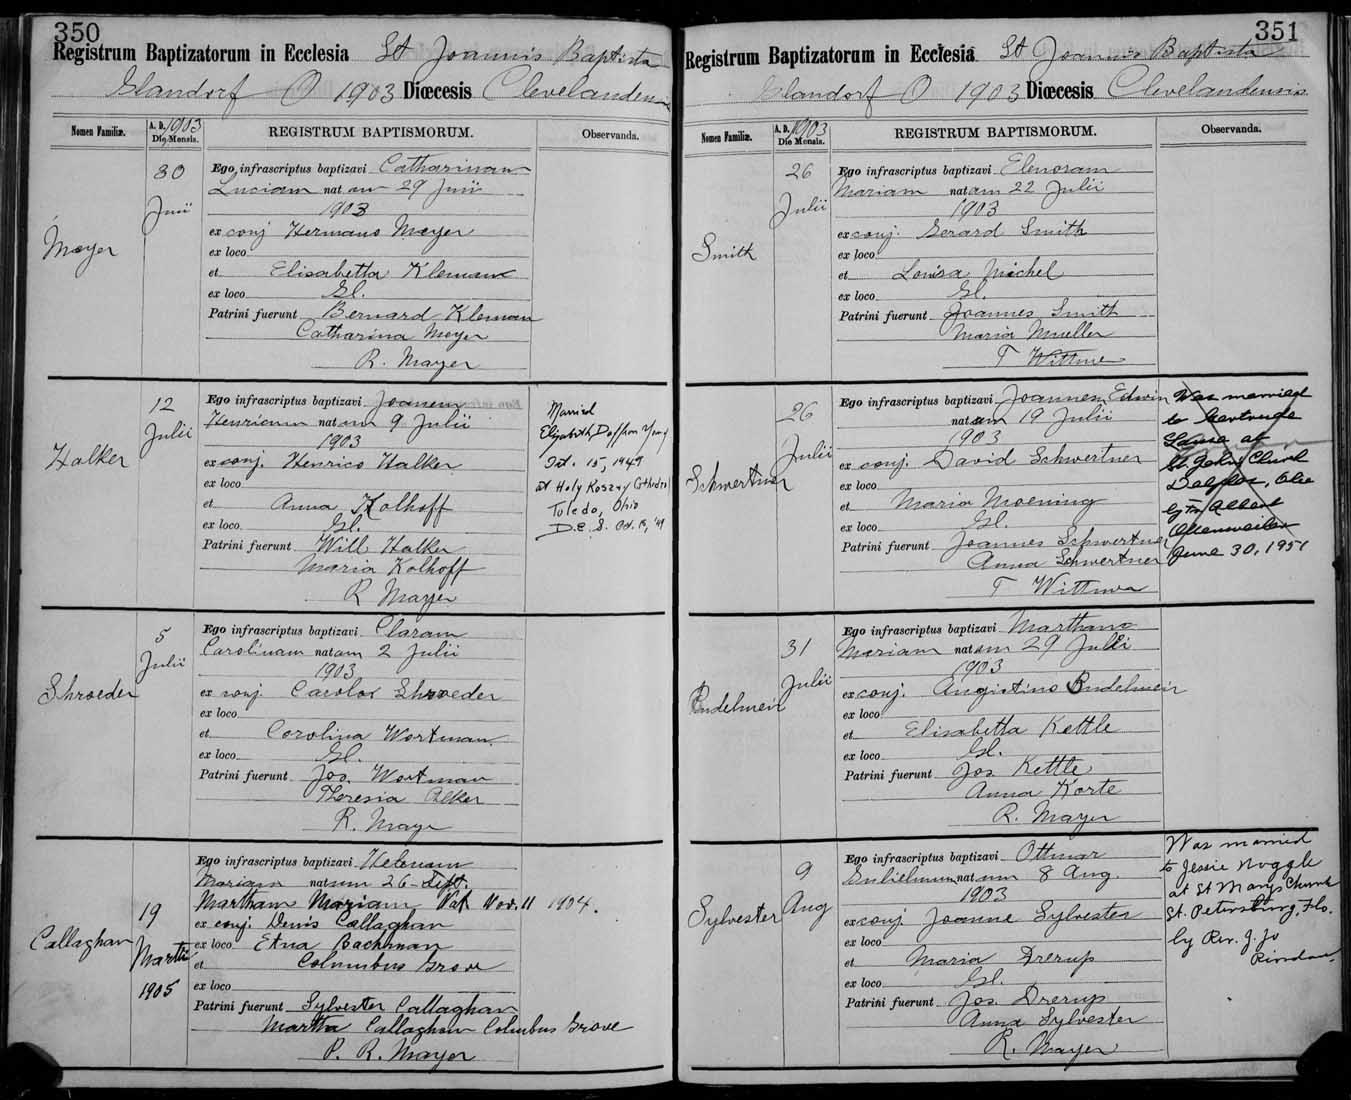 350
Registrum Baptizatorum in Ecclesia St Joannis Baptista
Glandorf O 1903 Diœcesis Clevelandensis
Nomen Familiæ.
A. D. 1903
Die Mensis.
REGISTRUM BAPTISMORUM.
Observanda.
Meyer
30
Junii
Ego infrascriptus baptizavi Catharinam
Luciam natam 29 Junii
1903
ex conj Hermano Meyer
ex loco
et Elisabetta Kleman
ex loco Gl.
Patrini fuerunt Bernard Kleman
Catharina Meyer
R. Mayer
Halker
12
Julii
Ego infrascriptus baptizavi Joanem
Henricum natum 9 Julii
1903
ex conj. Henrico Halker
ex loco
et Anna Kolhoff
ex loco Gl.
Patrini fuerunt Will Halker
Maria Kolhoff
R Mayer
Married
Elizabeth
Oct. 15, 1949
at Holy Rosary Cathedral
Toledo, Ohio
Shroeder
5
Julii
Ego infrascriptus baptizavi Claram
Carolinam natam 2 Julii
1903
ex conj. Carolo Shroeder
ex loco
et Carolina Wortman
ex loco Gl.
Patrini fuerunt Jos. Wortman
Theresia Alker
R. Mayr
Callaghan
19
Martii
1905
Ego infrascriptus baptizavi Helenam
Mariam natum 26 - Sept.
Martham Mariam Nat Nov. 11 1904.
ex conj. Denis Callaghan
ex loco Etna Bachman
et Columbus Grove
ex loco
Patrini fuerunt Sylvester Callaghan
Martha Callaghan Columbus Grove
P. R. Mayer
351
Registrum Baptizatorum in Ecclesia St Joannis Baptista
Glandorf O 1903 Diœcesis Clevelandensis
Nomen Familiæ.
A. D. 1903
Die Mensis.
REGISTRUM BAPTISMORUM.
Observanda.
Smith
26
Julii
Ego infrascriptus baptizavi Elenoram
Mariam natam 22 Julii
1903
ex conj. Gerard Smith
ex loco
et Louisa Michel
ex loco Gl.
Patrini fuerunt Joannes Smith
Maria Mueller
T Wittmer
Schwertner
26
Julii
Ego infrascriptus baptizavi Joannem Edwin
natum 19 Julii
1903
ex conj. David Schwertner
ex loco
et Maria Moening
ex loco Gl.
Patrini fuerunt Joannes Schwertner
Anna Schwertner
T Wittmer
Was married
to Gertrude
at
St. John Church
Delphos, Ohio
by Fr. Albert
Ottenweiler
June 30, 1951
31
Julii
Ego infrascriptus baptizavi Martham
Mariam natam 29 Julii
1903
ex conj. Augistino
ex loco
et Elisabetta Kettle
ex loco Gl.
Patrini fuerunt Jos. Kettle
Anna Korte
R. Mayer
Sylvester
9
Aug
Ego infrascriptus baptizavi Ottmar
Gulielmum natum 8 Aug.
1903
ex conj. Joanne Sylvester
ex loco
et Maria Drerup
ex loco Gl.
Patrini fuerunt Jos. Drerup
Anna Sylvester
R. Mayer
Was married
to Jessie Noggle
at St Marys Church
St. Petersburg, Flo.
by Rev. J. Jo